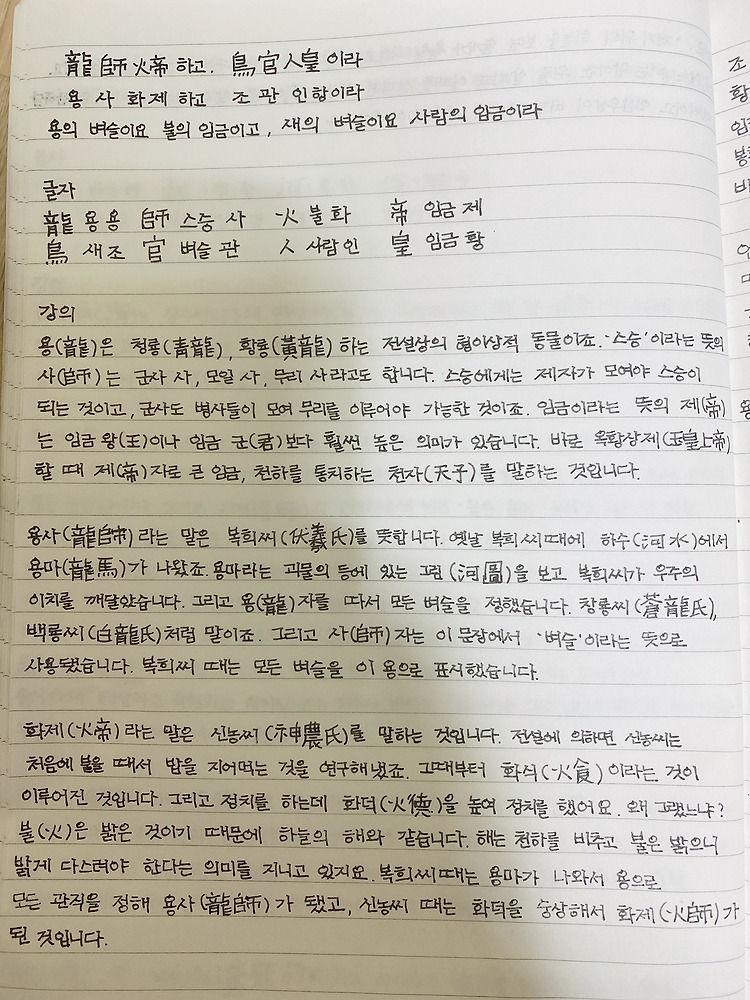 龍師火帝하고. 鳥官人皇이라
용 사 화 제 하고 조 관 인 황이라
용의 벼슬이요 불의 임금이고, 새의 벼슬이요 사람의 임금이라
글자
龍 용 용 師 스승 사 火 불 화 帝 임금 제
鳥 새 조 官 벼슬 관 人 사람 인 皇 임금 황
강의
용(龍)은 청룡(靑龍), 황룡(黃龍) 하는 전설상의 형이상적 동물이죠. '스승'이라는 뜻의
사(師)는 군사 사, 모일 사, 무리 사라고도 합니다. 스승에게는 제자가 모여야 스승이
되는 것이고, 군사도 병사들이 모여 무리를 이루어야 가능한 것이죠. 임금이라는 뜻의 제(帝)
는 임금 왕(王)이나 임금 군(君)보다 훨씬 높은 의미가 있습니다. 바로 옥황상제(玉皇上帝)
할 때 제(帝)자로 큰 임금, 천하를 통치하는 천자(天子)를 말하는 것입니다.
용사(龍師)라는 말은 복희씨(伏羲氏)를 뜻합니다. 옛날 복희씨때에 하수(河水)에서
용마(龍馬)가 나왔죠. 용마라는 괴물의 등에 있는 그림(河圖)을 보고 복희씨가 우주의
이치를 깨달았습니다. 그리고 용(龍)자를 따서 모든 벼슬을 정했습니다. 창룡씨(蒼龍氏),
백룡씨(白龍氏)처럼 말이죠. 그리고 사(師)자는 이 문장에서 '벼슬'이라는 뜻으로
사용됐습니다. 복희씨 때는 모든 벼슬을 이 용으로 표시했습니다.
화제(火帝)라는 말은 신농씨(神農氏)를 말하는 것입니다. 전설에 의하면 신농씨는
처음에 불을 때서 밥을 지어먹는 것을 연구해냈죠. 그때부터 화식(火食)이라는 것이
이루어진 것입니다. 그리고 정치를 하는데 화덕(火德)을 높여 정치를 했어요. 왜 그랬느냐?
불(火)은 밝은 것이기 때문에 하늘의 해와 같습니다. 해는 천하를 비추고 불은 밝으니
밝게 다스려야 한다는 의미를 지니고 있지요. 복희씨때는 용마가 나와서 용으로
모든 관직을 정해 용사(龍師)가 됐고, 신농씨 때는 화덕을 숭상해서 화제(火師)가
된 것입니다.
조
황
임금